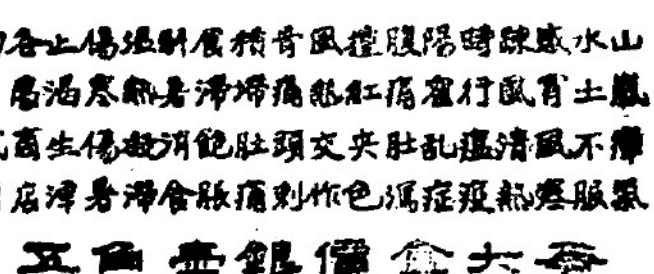 山嵐瘴氣
水土不服
感冒風寒
疎風清熱
時行瘟疫
陽霍乱症
腹痛肚瀉
撞紅夾色
風熱交作
骨痛頭刺
積滯肚痛
食滯飽脹
解暑消食
熱滯
傷寒傷暑
止渴生津
各店
每大盒價銀壹角五